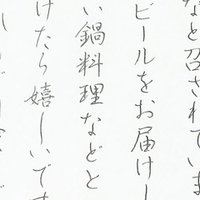 なと召されていま
ビールをお届けし
い鍋料理などと
けたら嬉しいです